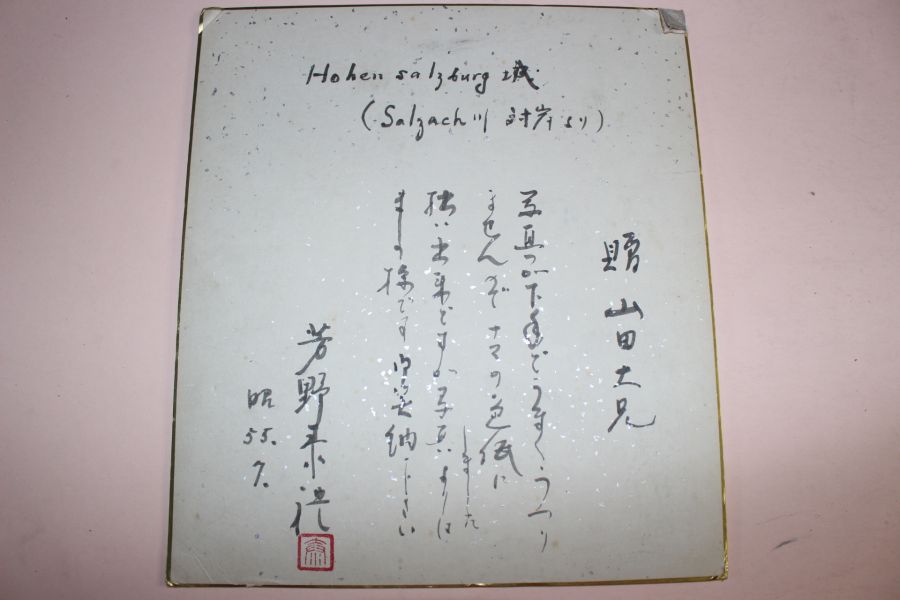 Hohen salzburg 城
(Salzach川 対岸より)
贈 山田大兄
写真が下手でうまくうつり
ませんのでナマの色紙に
しました
拙い出来ですが写真よりは
ましの様です 御笑納下さい
芳野
昭55.7.